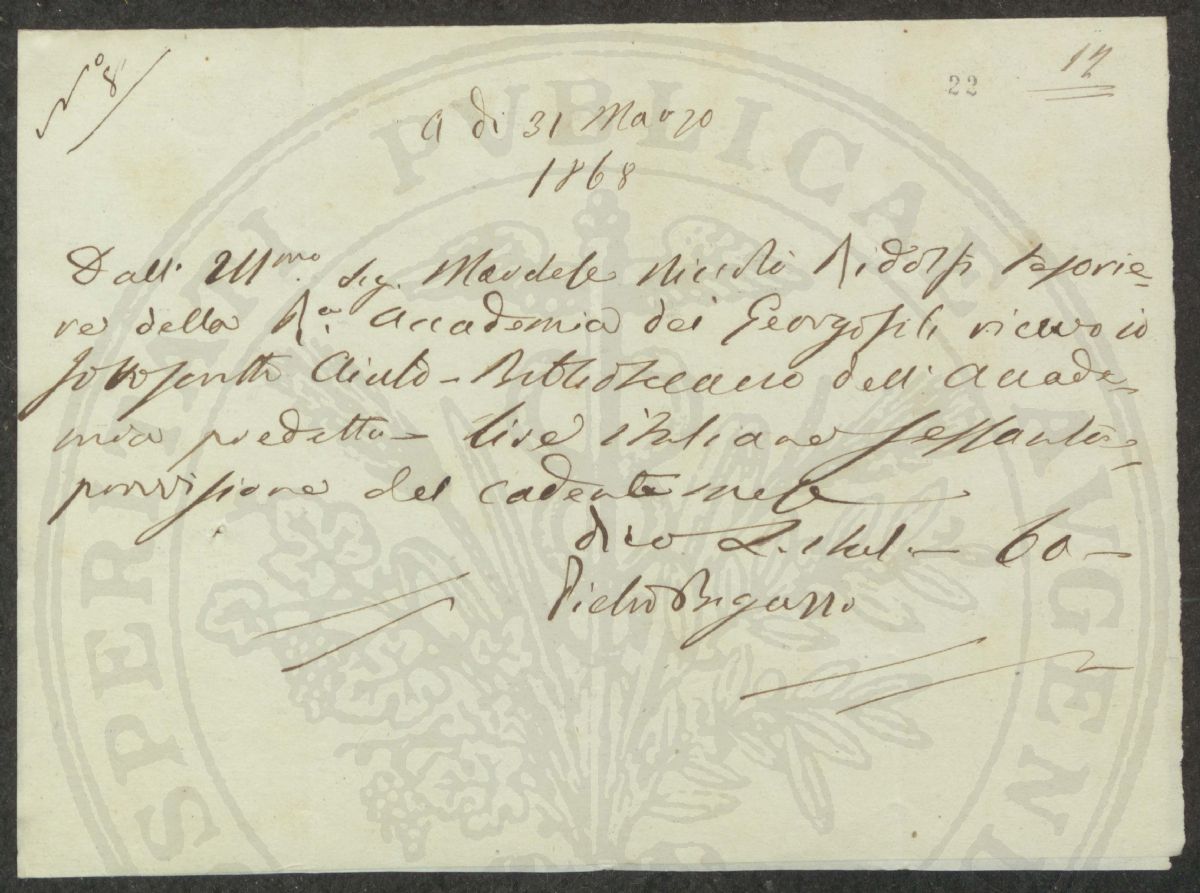 N.º 8
22
12
A dì 31 Marzo
1868
Dall' Illmo. Sig. Marchese Niccolò Ridolfi Tesorie=
re della Ra. Accademia dei Georgofili ricevo io
sottoscritto Aiuto-Bibliotecario dell' Accade=
mia predetta - Lire italiane sessanta=
provvisione del cadente mese
dico L. ital - 60 -
Pietro Bigazzi
SPERITATI PVBLICAE AVGEN